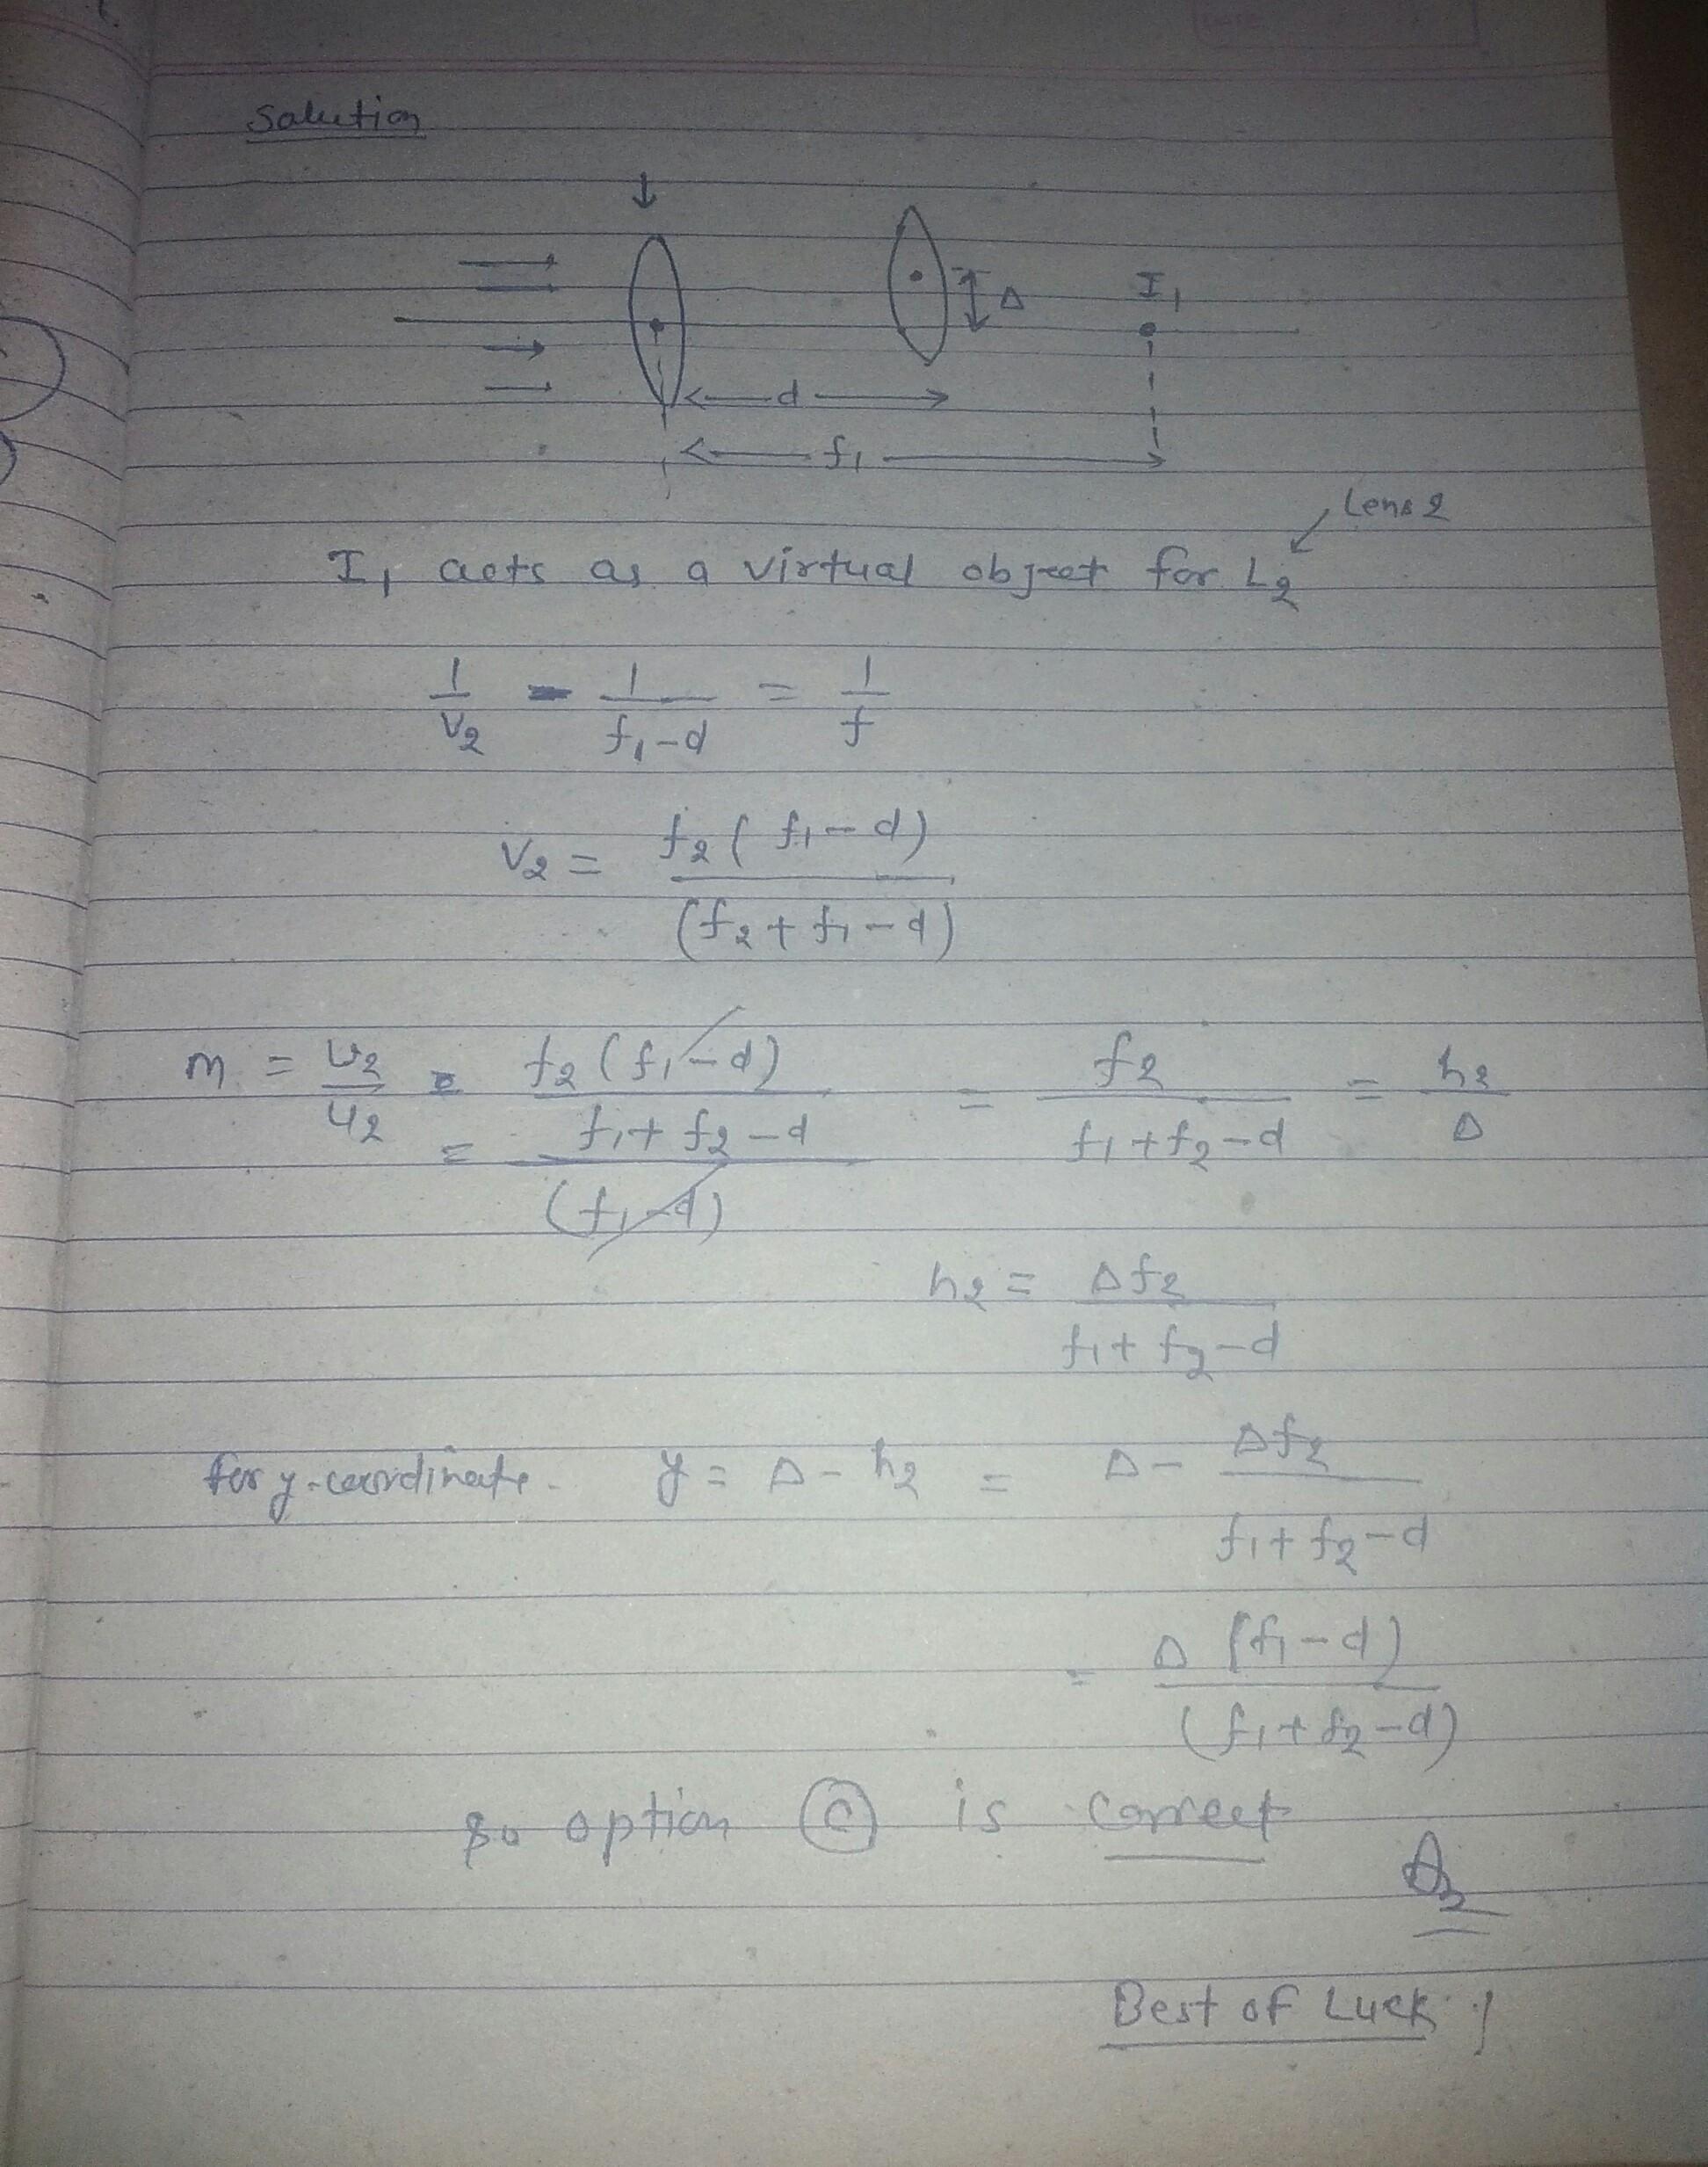 Solution
↓
Δ
I₁
d
f₁
Lens 2
I₁ acts as a virtual object for L₂
1/V₂ - 1/(f₁-d) = 1/f
V₂ = f₂(f₁-d)/(f₂+f₁-d)
m = v₂/u₂ = = (f₂(f₁-d)/(f₁+f₂-d))/(f₁-d) = f₂/(f₁+f₂-d) = h₂/Δ
h₂ = Δf₂/(f₁+f₂-d)
for y-coordinate. y = Δ - h₂ = Δ - Δf₂/(f₁+f₂-d)
= Δ(f₁-d)/(f₁+f₂-d)
So option Ⓒ is correct
Best of Luck !